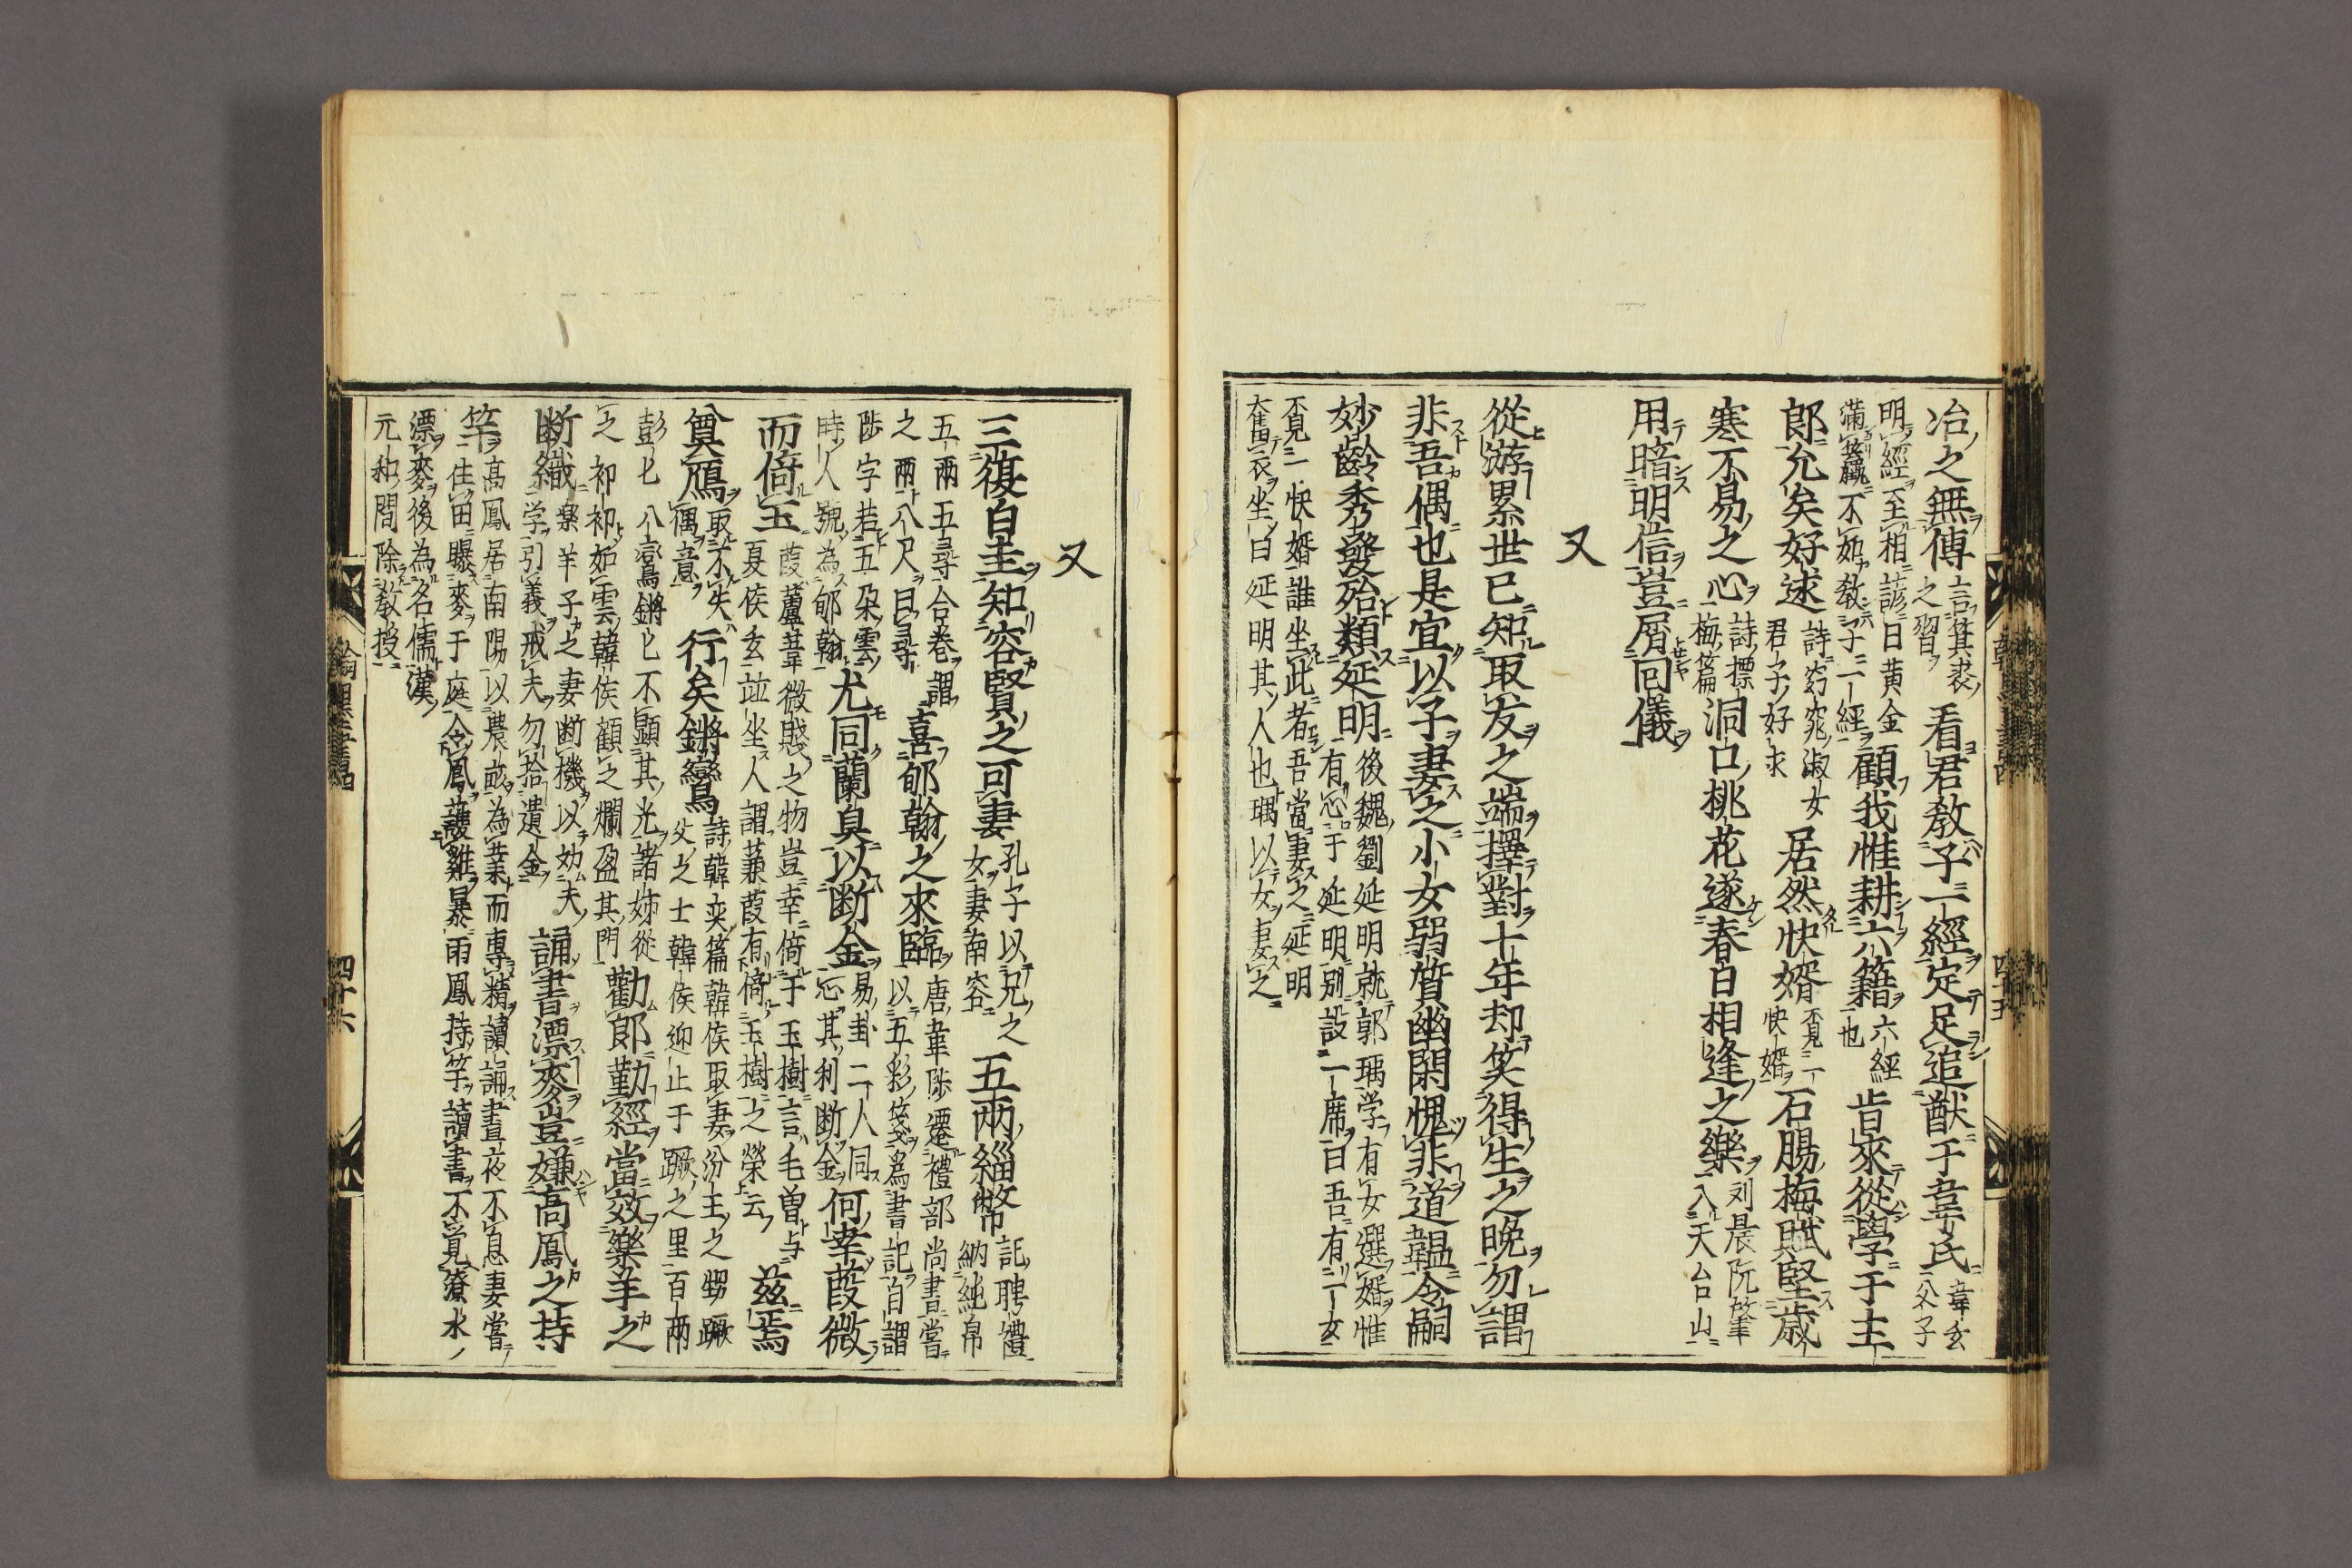 冶之無傳 言箕裘之習 看君教子一經定足追猷于韋氏 韋玄父子
明經至相諺曰黃金滿籯不如教子一經 顧我惟耕六籍 六經也 肯來從學于主
郎允矣好逑 詩窈窕淑女君子好求 居然快婿 覔一快婿 石腸梅賦堅歲
寒不易之心 詩摽梅篇 洞口桃花遂春白相逢之樂 刘晨阮肇入天台山
用暗明信豈屑同儀
又
從游累世已知取友之端擇對十年却笑得生之晚勿謂
非吾偶也是宜以子妻之小女弱質幽閑愧非道韞令嗣
妙齡秀發殆類延明 後魏劉延明就郭瑀学有女選婿惟有心于延明別設一席曰吾有一女
覔一快婿誰坐此者吾當妻之延明
奮衣坐曰延明其人也瑀以女妻之
又
三復白圭知容賢之可妻 孔子以兄之女妻南容 五兩緇幣 記聘禮納純帛
五兩五尋合卷謂之兩八尺曰尋 喜郇翰之來臨 唐韋陟遷禮部尚書嘗以五彩箋爲書記自謂
陟字若五朶雲時人號為郇翰 尤同蘭臭以断金 易卦二人同心其利断金 何幸葭微
而倚玉 葭蘆葦微賤之物豈幸倚于玉樹言毛曽与夏侯玄竝坐人謂蒹葭有倚玉樹之榮云 茲焉
奠鴈 取不失偶意 行矣鏘鸞 詩韓奕篇韓侯取妻汾王之甥蹶父之士韓侯迎止于蹶之里百兩
彭七八鸞鏘七不顯其光諸娣從之祁祁如雲韓侯顧之爛盈其門 勸郎勤經當效樂羊之
断織 樂羊子之妻断機以効夫学引義戒夫勿拾遺金 誦書漂麥豈嫌高鳳之持
竿 高鳳居南陽以農畝為業而專精讀誦晝夜不息妻嘗住田曝麥于庭令鳳護雞暴雨鳳持竿讀書不覚潦水
漂麥後為名儒漢
元和間除教授
四十六